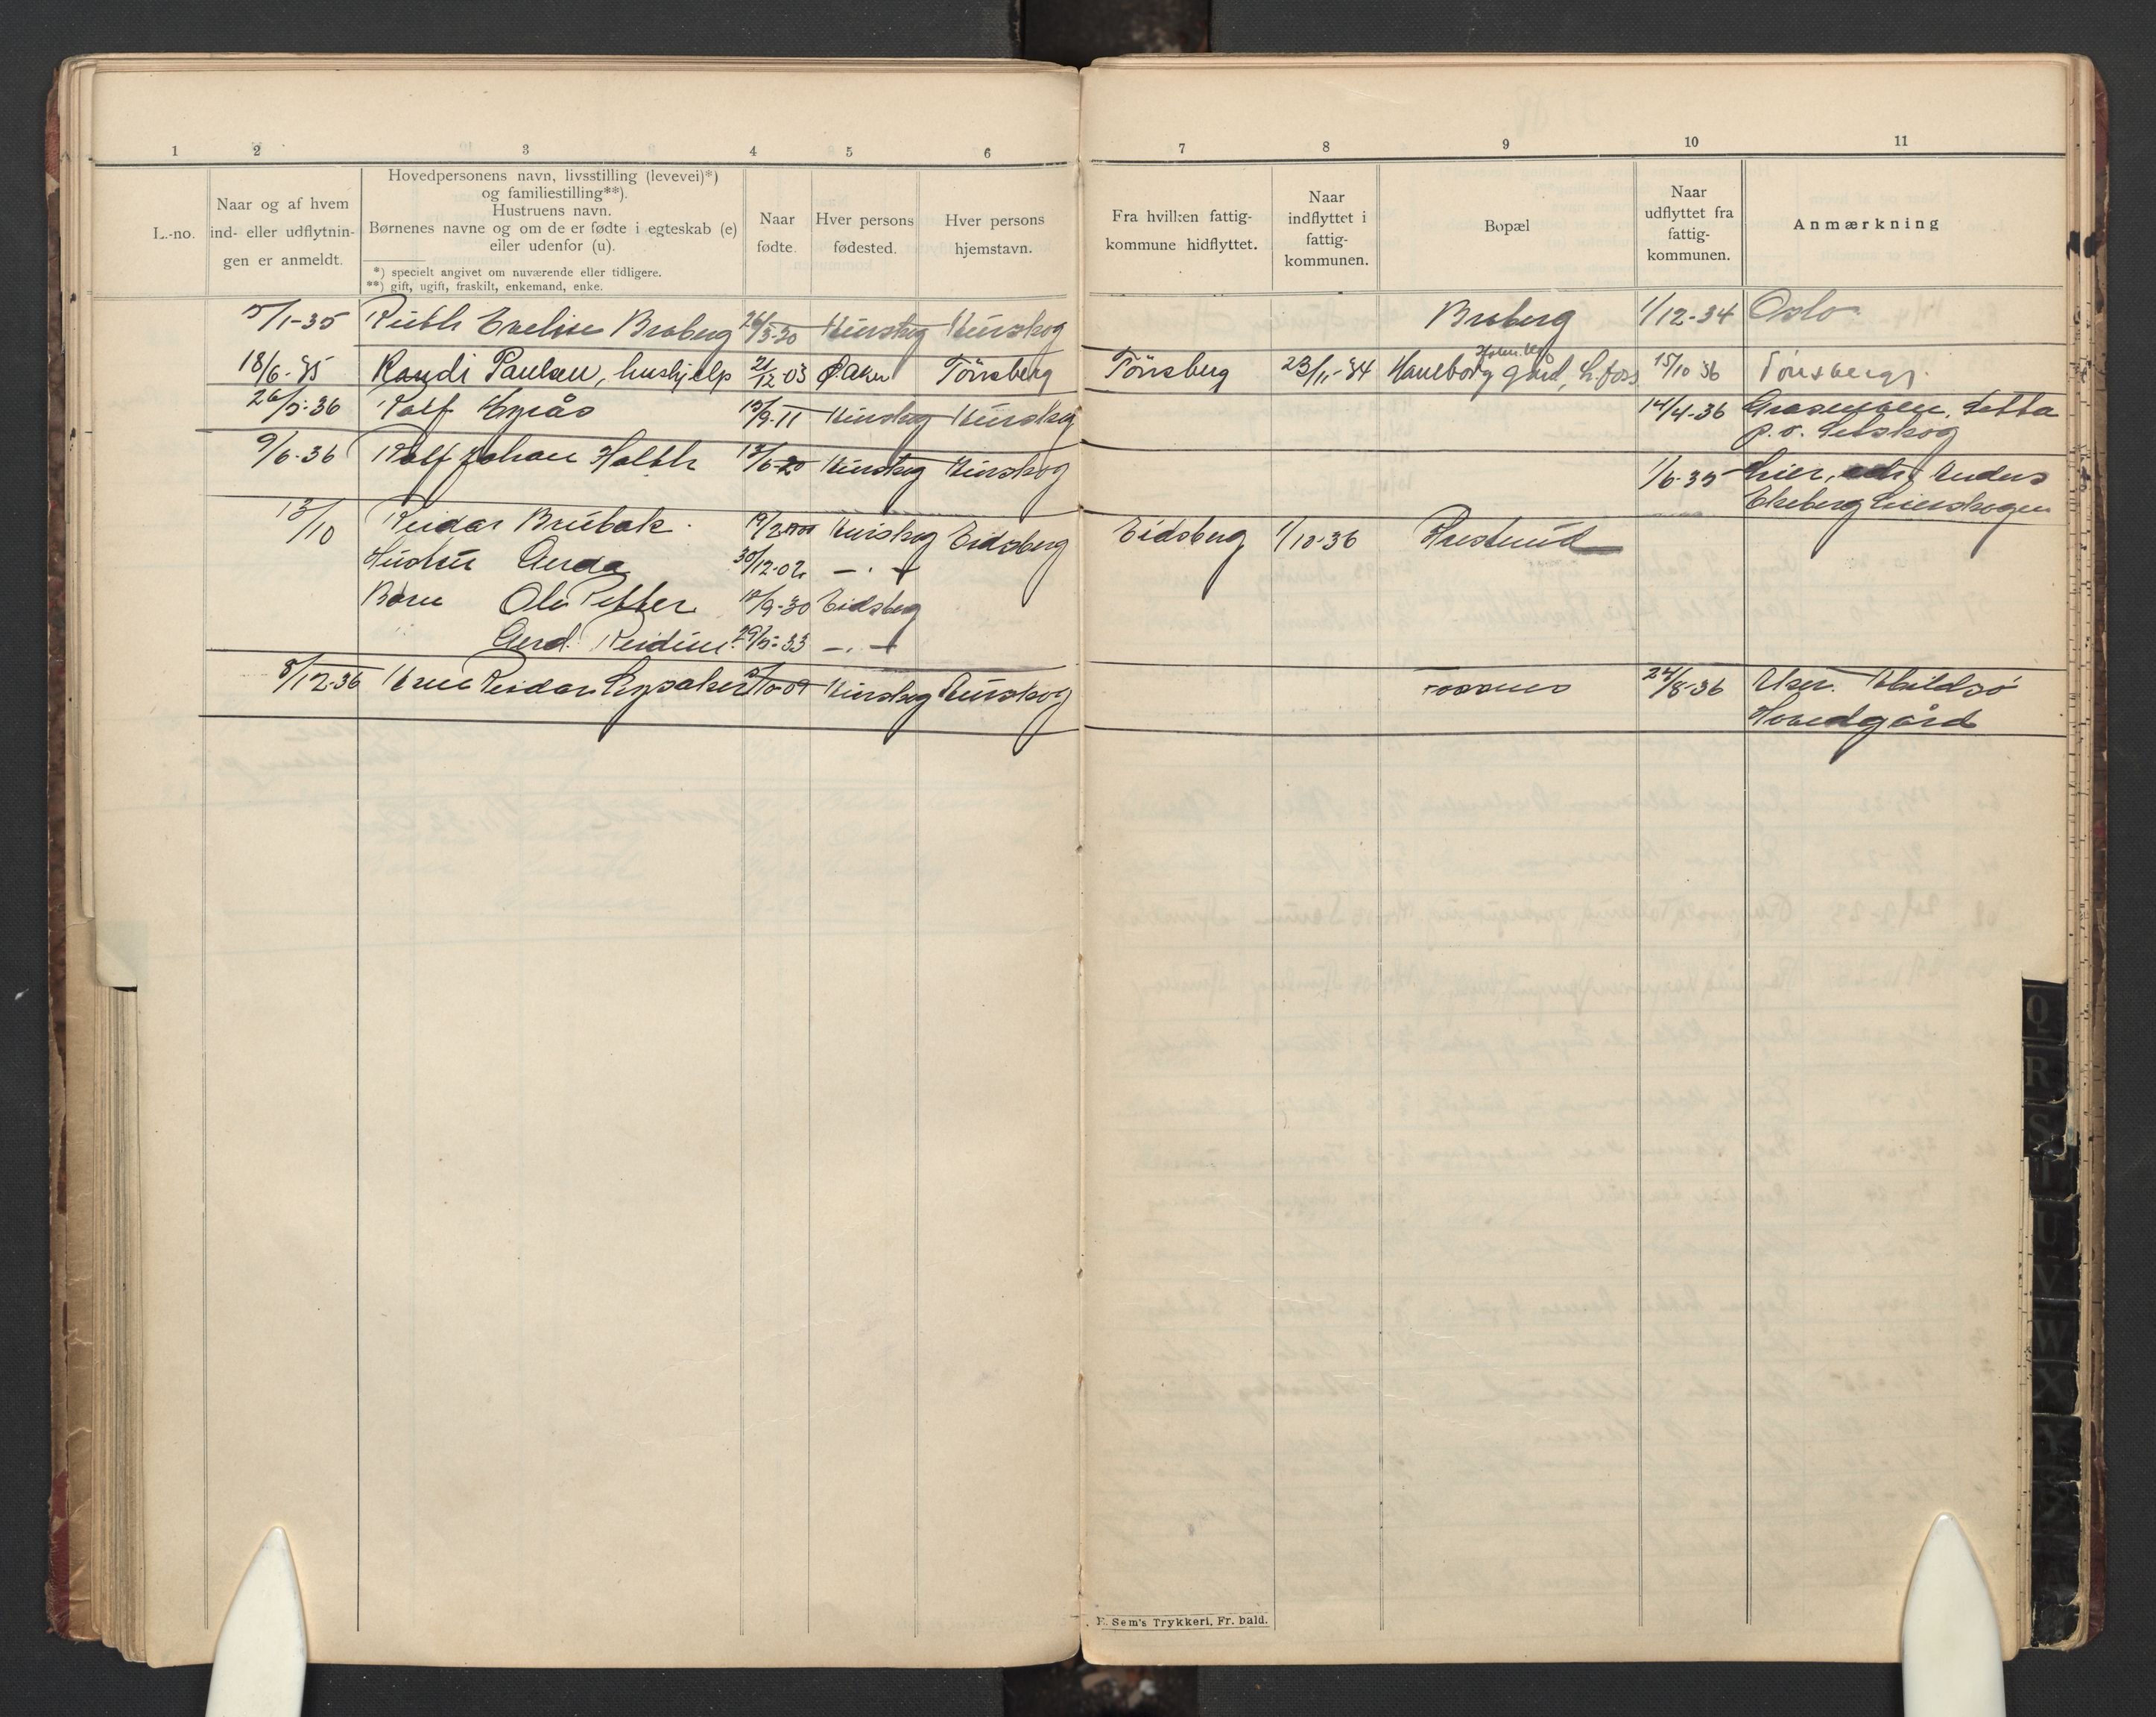 1 2 3 4 5 6 7 8 9 10 11
L.-no.
Naar og af hvem
ind- eller udflytnin-
gen er anmeldt.
Hovedpersonens navn, livsstilling (levevei)*)
og familiestilling**).
Hustruens navn.
Børnenes navne og om de er fødte i egteskab (e)
eller udenfor (u).
*) specielt angivet om nuværende eller tidligere.
**) gift, ugift, fraskilt, enkemand, enke.
Naar
fødte.
Hver persons
fødested.
Hver persons
hjemstavn.
Fra hvilken fattig-
kommune hidflyttet.
Naar
indflyttet i
fattig-
kommunen.
Bopæl
Naar
udflyttet fra
fattig-
kommunen.
Anmærkning
5/1-35 Ruth Eveline Braberg 26/3-20 Aurskog Aurskog Braberg 1/12-34 Oslo
18/6-35 Randi Paulsen, hushjelp 21/12 03 Ø. Aker Tönsberg Tönsberg 23/11-34 Haneborg gård, L.foss 15/10 36 Tönsberg
26/5-36 Rolf 15/9-11 Aurskog Aurskog 14/4-36 Setten
p.å. Setskog
9/6-36 Rolf Johan Holth 13/6-20 Aurskog Aurskog 1/6-35 Lier, Anders
Ekeberg Lierskogen
13/10 Reidar Brubak 19/2 1900 Aurskog Eidsberg Eidsberg 1/10-36
Hustru Gerda 30/12-02 — . —
Barn Ole Petter 18/9-30 Eidsberg
Gerd Reidun 29/5-33 — . —
8/12-36 Arne Reidar Lysaker 5/10-09 Aurskog Aurskog Fossnes 24/8-36 Aker. Abildsö
Hovedgård
E. Sem's Trykkeri, Fr. hald.
Q
R
S
T
U
V
W
X
Y